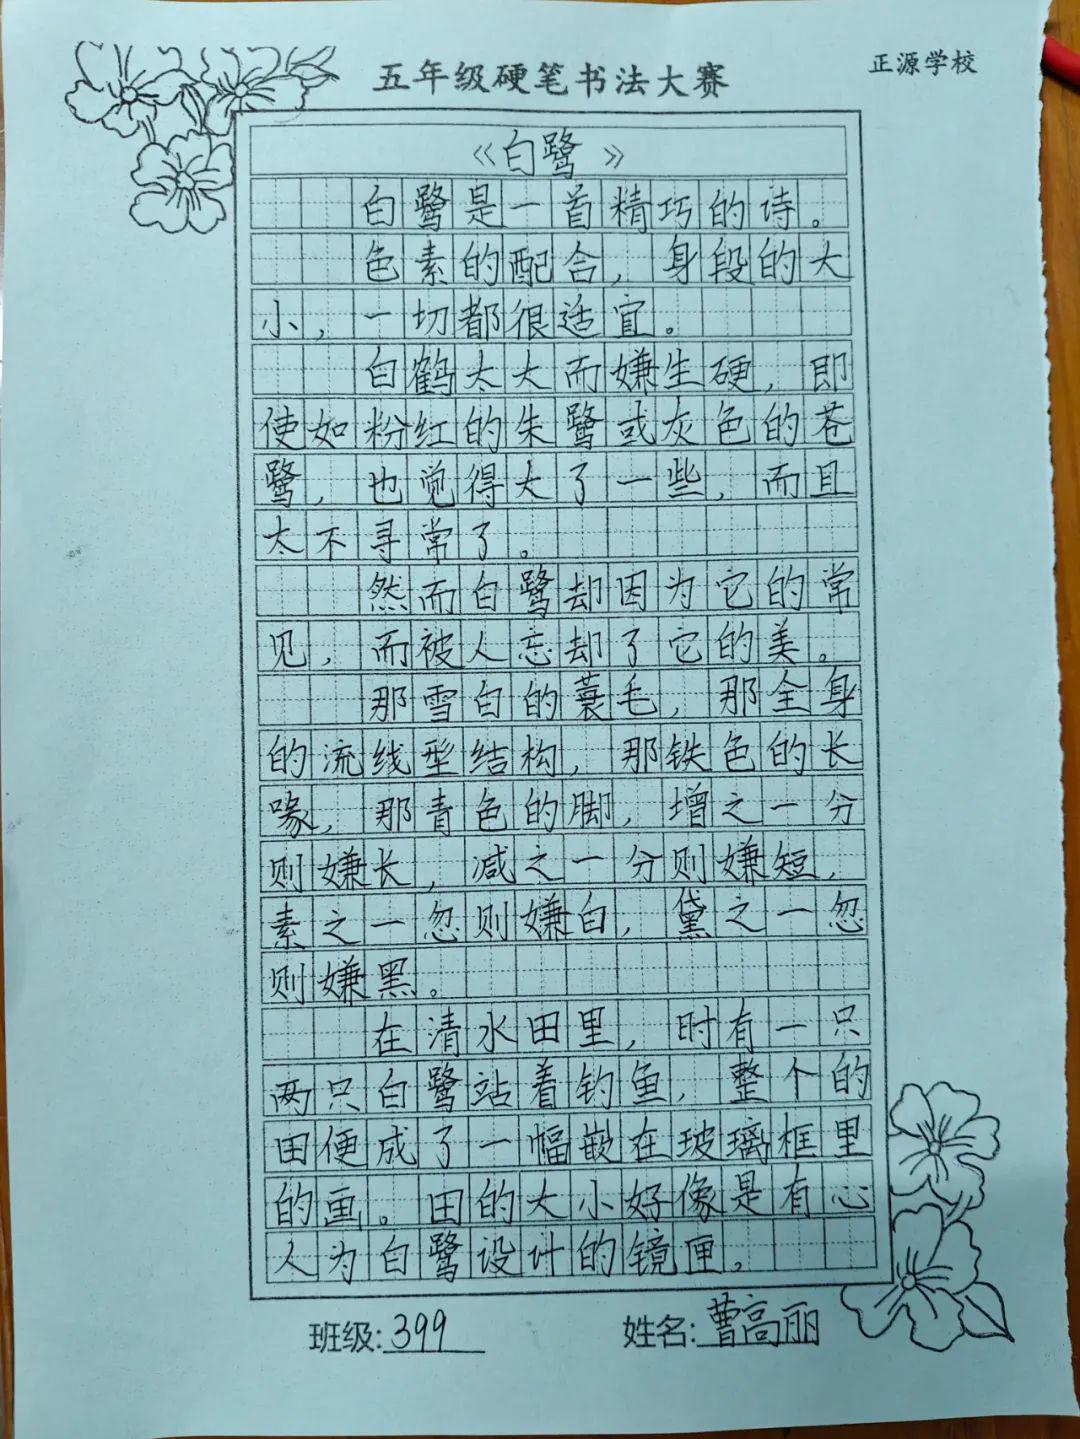 正源学校
五年级硬笔书法大赛
《白鹭》
白鹭是一首精巧的诗。
色素的配合，身段的大
小，一切都很适宜。
白鹤太大而嫌生硬，即
使如粉红的朱鹭或灰色的苍
鹭，也觉得大了一些，而且
太不寻常了。
然而白鹭却因为它的常
见，而被人忘却了它的美。
那雪白的蓑毛，那全身
的流线型结构，那铁色的长
喙，那青色的脚，增之一分
则嫌长，减之一分则嫌短，
素之一忽则嫌白，黛之一忽
则嫌黑。
在清水田里，时有一只
两只白鹭站着钓鱼，整个的
田便成了一幅嵌在玻璃框里
的画。田的大小好像是有心
人为白鹭设计的镜匣。
班级:399 姓名:曹高丽